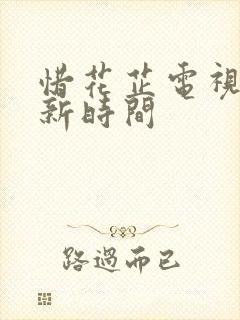 惜花芷電視
新時間
路過而已